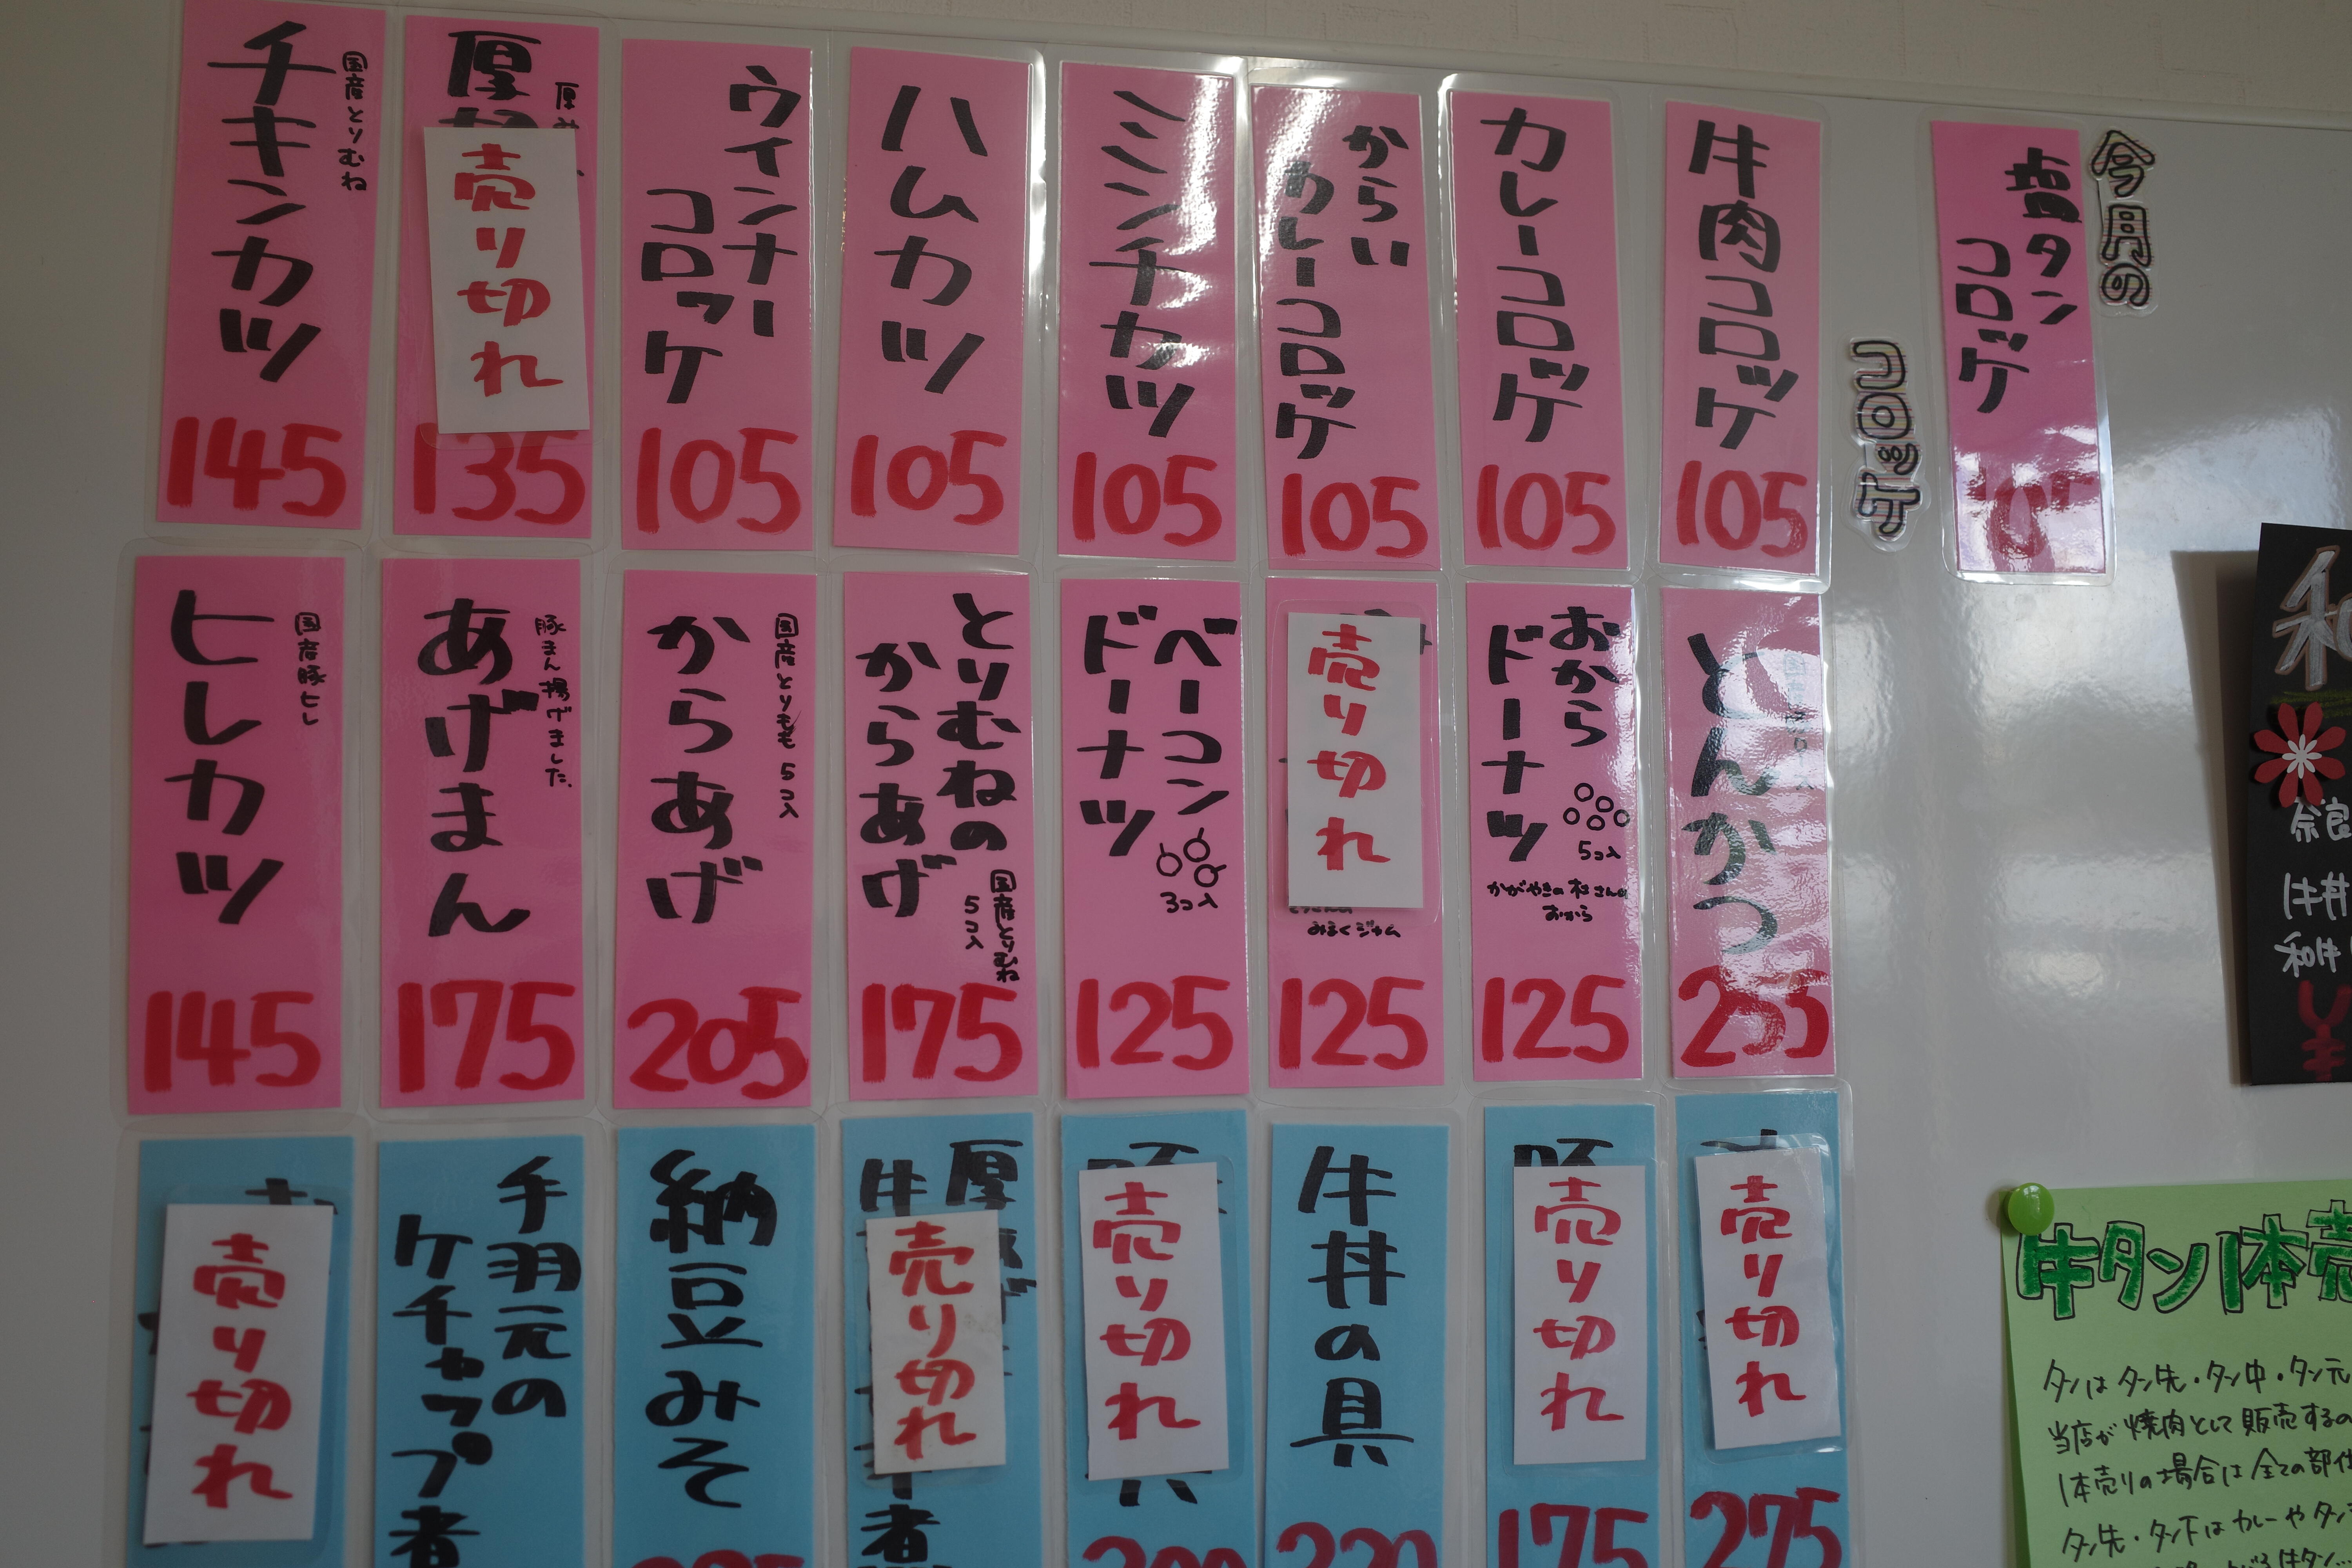 今月の
コロッケ
塩タン
コロッケ
105
牛肉コロッケ
105
カレーコロッケ
105
からい
カレーコロッケ
105
ミンチカツ
105
ハムカツ
105
ウィンナー
コロッケ
105
厚
厚み
売り切れ
135
国産とりむね
チキンカツ
145
とんかつ
255
おから
ドーナツ
5コ入
かがやきの杜さんの
おから
125
売り切れ
みるくジャム
125
ベーコン
ドーナツ
3コ入
125
とりむねの
からあげ
国産とりむね
5コ入
175
国産とりもも 5コ入
からあげ
205
豚まん揚げました。
あげまん
175
国産豚ヒレ
ヒレカツ
145
売り切れ
275
売り切れ
175
牛丼の具
220
売り切れ
厚
牛
売り切れ
納豆みそ
手羽元の
ケチャップ煮
売り切れ
和
奈良
牛丼
和牛
¥
牛タン1本売
タンはタン先・タン中・タン元
当店が焼肉として販売するの
1本売りの場合は全ての部位
タン先・タン下はカレーやタン